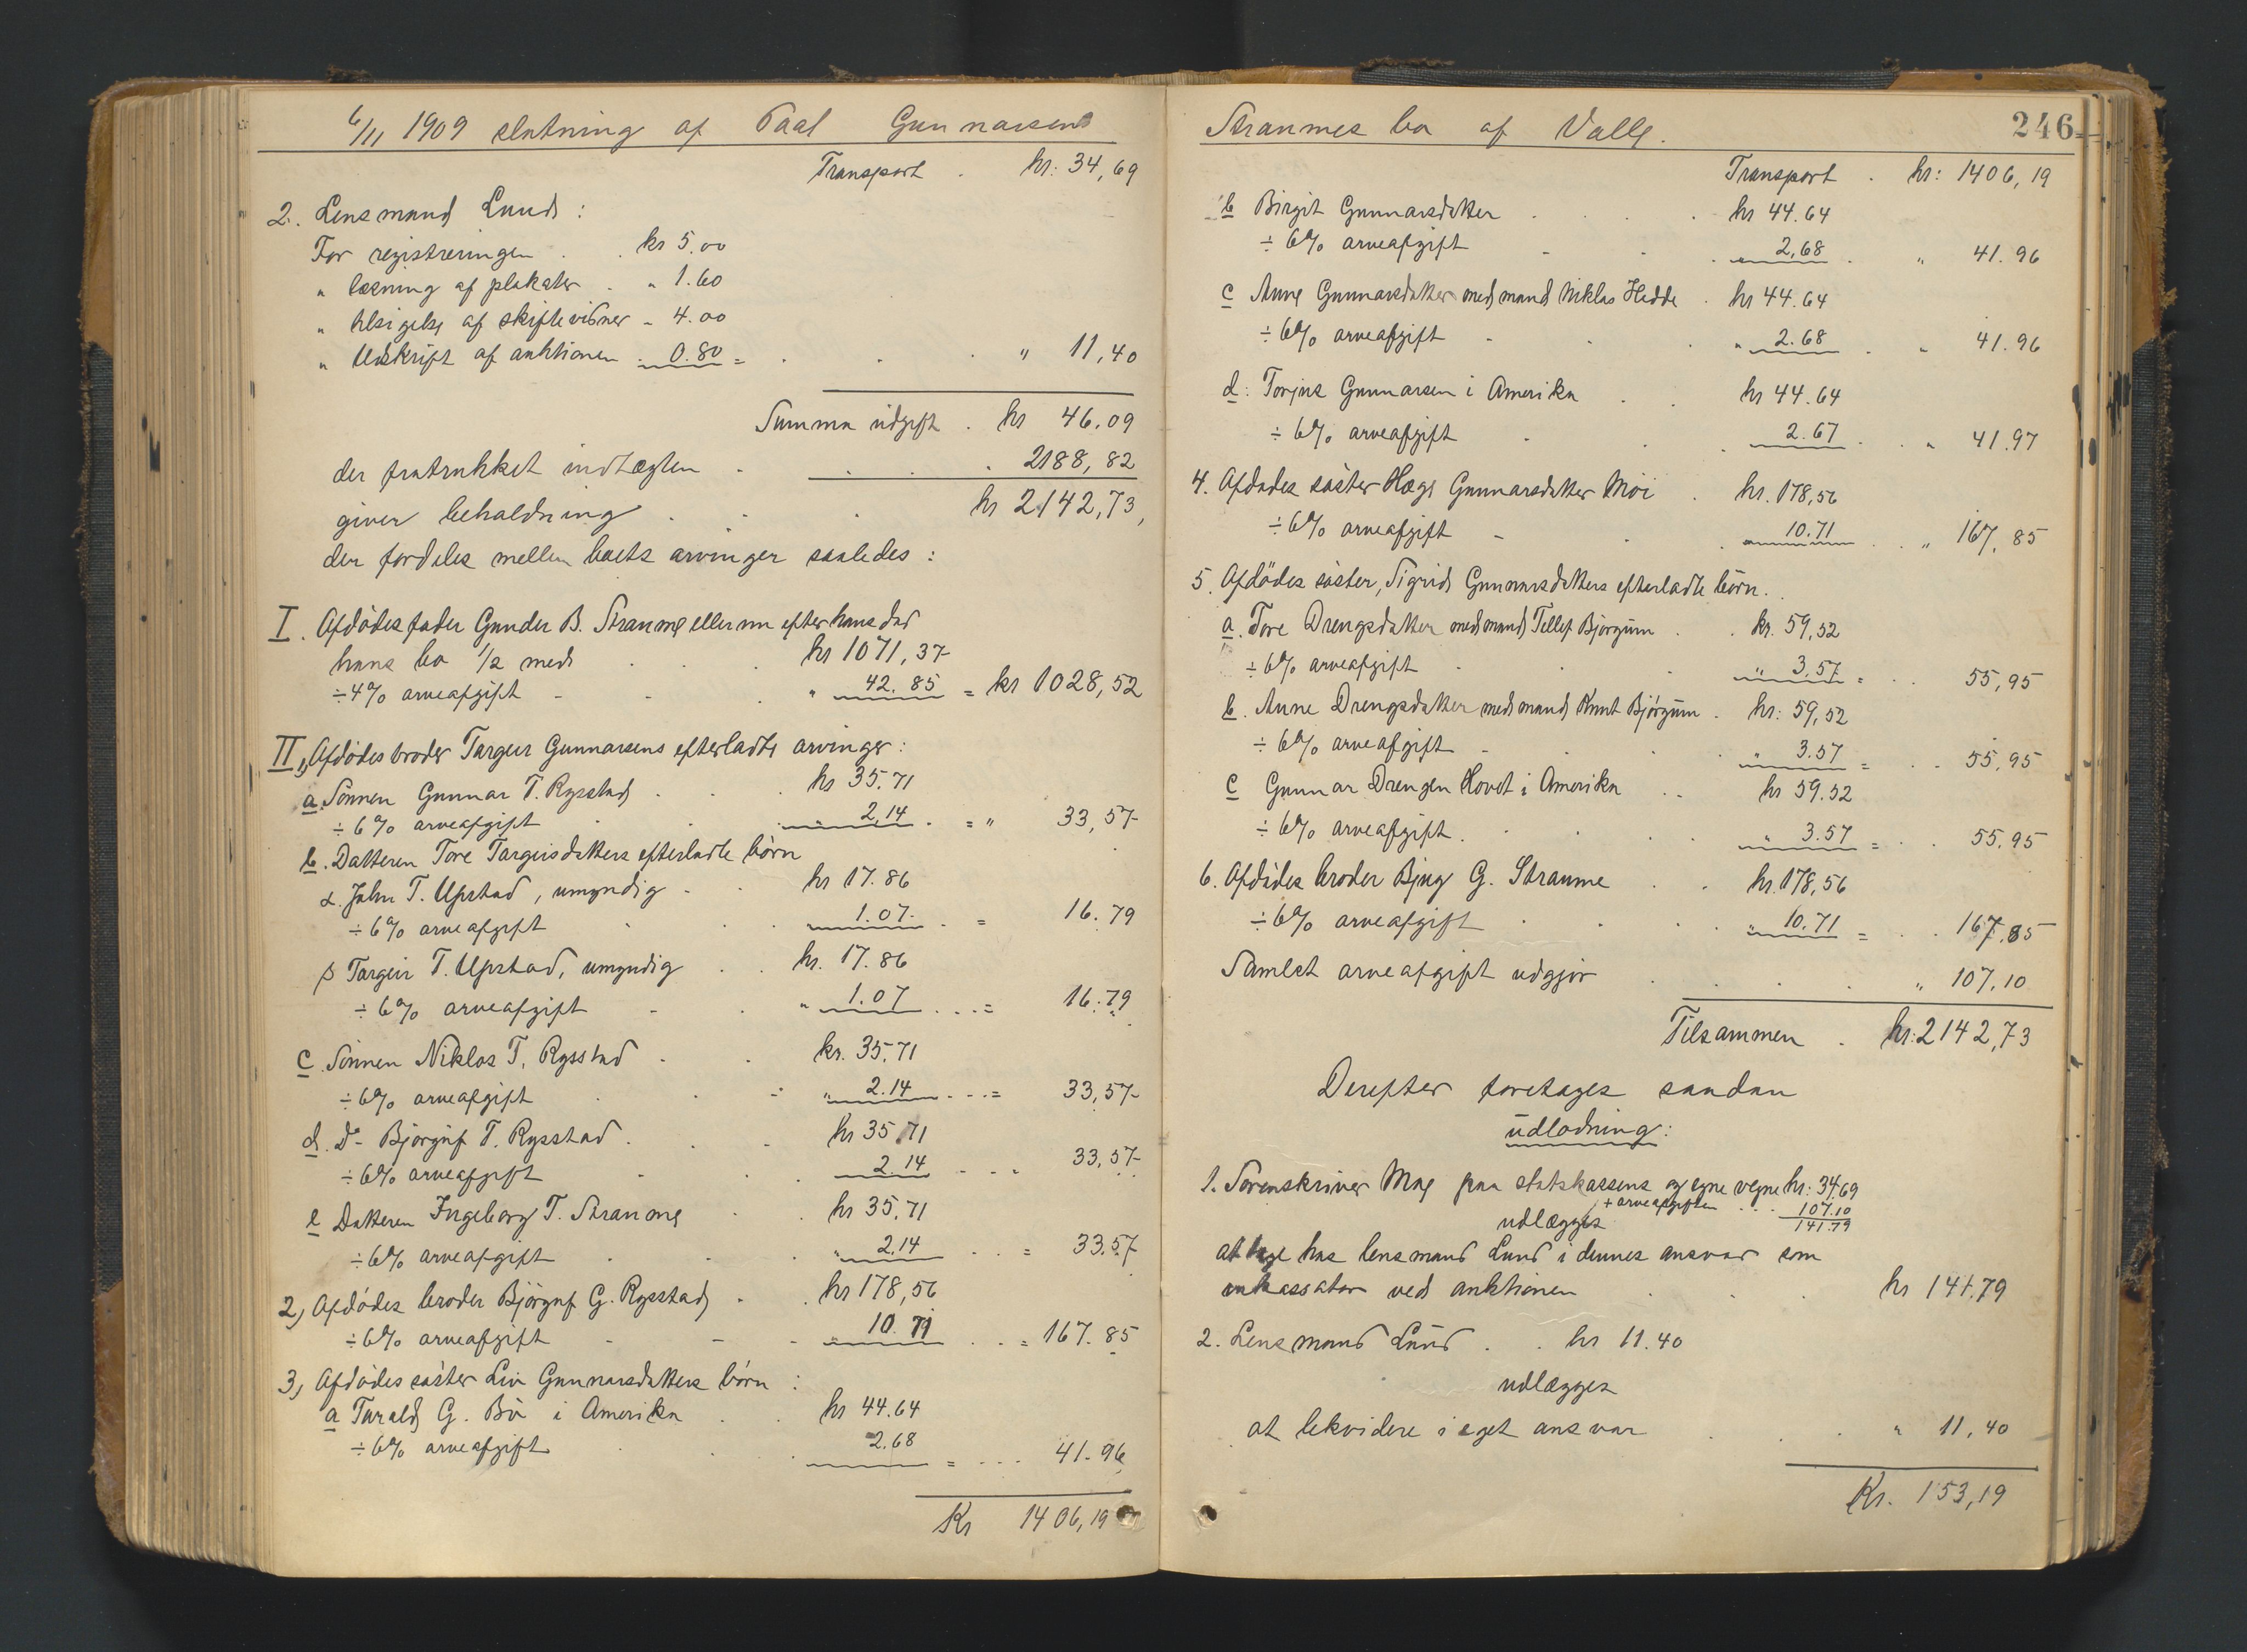 6/11 1909 slutning af Paal Gunnarsens
Transport . kr: 34,69
2. Lensmand Lund:
For registreringen . . kr 5.00
" læsning af plakater . " 1.60
" tilsigelse af skiftevidner - 4.00
" Udskrift af auktionen . 0.80 = . . . " 11,40
Summa udgift . kr 46.09
der fratrukket indtægten . . . . 2188,82
giver beholdning . . . kr 2142,73,
der fordeles mellem boets arvinger saaledes:
I. Afdødes fader Gunder B. Straume eller nu efter hans død
hans bo 1/2 med . . . kr 1071,37
÷ 4% arveafgift - - . " 42.85 = kr 1028,52
II 1, Afdødes broder Targeir Gunnarsens efterladte arvinger:
a. Sønnen Gunnar T. Rysstad . . . kr 35.71
÷ 6% arveafgift . . " 2,14 . = " 33,57
b. Datteren Tore Targeirsdatters efterladte børn
α. John T. Upstad, umyndig - . kr 17.86
÷ 6% arveafgift . . . 1.07. . = 16.79
β Targeir T. Upstad, umyndig . . kr. 17.86
÷ 6% arveafgift - . " 1.07 . . . = 16.79
c. Sønnen Niklos T. Rysstad . . kr. 35,71
÷ 6% arveafgift . . - " 2.14 . . . = 33,57
d. Do - Bjørguf T. Rysstad . . - kr 35,71
÷ 6% arveafgift . . 2.14 . . . 33,57
e Datteren Ingeborg T. Straume . . kr 35,71
÷ 6% arveafgift . . " 2,14 . . = 33.57
2, Afdødes broder Bjørguf G. Rysstad . . kr 178,56
÷ 6% arveafgift - - - " 10.71 . . = 167.85
3, Afdødes søster Liv Gunnarsdatters børn:
a Tarald G. Bø i Amerika . . kr 44.64
÷ 6% arveafgift . . . 2.68 = . . . 41.96
Kr 1406,19
Straumes bo af Valle.
246
Transport . kr: 1406,19
b Birgit Gunnarsdatter . . . . kr 44.64
÷ 6% arveafgift - . . " 2,68 . " 41.96
c Anne Gunnarsdatter med mand Niklos Hedde . kr 44.64
÷ 6% arveafgift - . . " 2.68 . " 41.96
d: Torjus Gunnarsen i Amerika . . kr 44.64
÷ 6% arveafgift - . . 2.67 . . " 41.97
4. Afdødes søster Hæge Gunnarsdatter Moi . kr. 178,56
÷ 6% arveafgift - . . 10.71 . . " 167.85
5. Afdødes søster, Sigrid Gunnarsdatters efterladte børn. .
a. Tore Drengsdatter med mand Tellef Bjørgum . . kr. 59,52
÷ 6% arveafgift - . " 3,57 = . . 55,95
b. Anne Drengsdatter med mand Knut Bjørgum . kr: 59,52
÷ 6% arveafgift - . . " 3.57 = . . 55,95
c Gunnar Drengsen Hovet i Amerika . . kr 59.52
÷ 6% arveafgift . . . . " 3.57 = . . 55.95
6. Afdødes broder Bjug G. Straume . . kr. 178,56
÷ 6% arveafgift . . . . " 10.71 = . . 167.85
Samlet arveafgift udgjør . . . . " 107,10
Tilsammen . kr: 2142,73
Derefter foretages saadan
udlodning:
1. Sorenskriver Moe paa statskassens og egne vegne kr: 34.69
+ arveafgiften . . . 107.10
udlægges 141.79
at tage hos lensmand Lund i dennes ansvar som
inkassator ved auktionen . . . kr 141.79
2. Lensmand Lund . . kr 11.40
udlægges
at likvidere i eget ansvar . . . " 11,40
Kr. 153,19